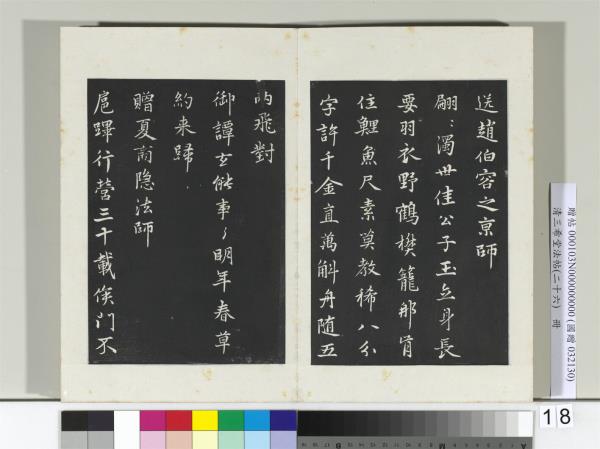 送趙伯容之京師
翩〻濁世佳公子玉立身長
要羽衣野鶴樊籠那肯
住鯉魚尺素莫教稀八分
字許千金直萬斛舟隨五
兩飛對
御譚玄能事〻明年春草
約來歸
贈夏啇隐法師
扈蹕行營三十載侯門不
贈帖 000103N000000000 (國贈 032130)
清三希堂法帖(二十六) 冊
18